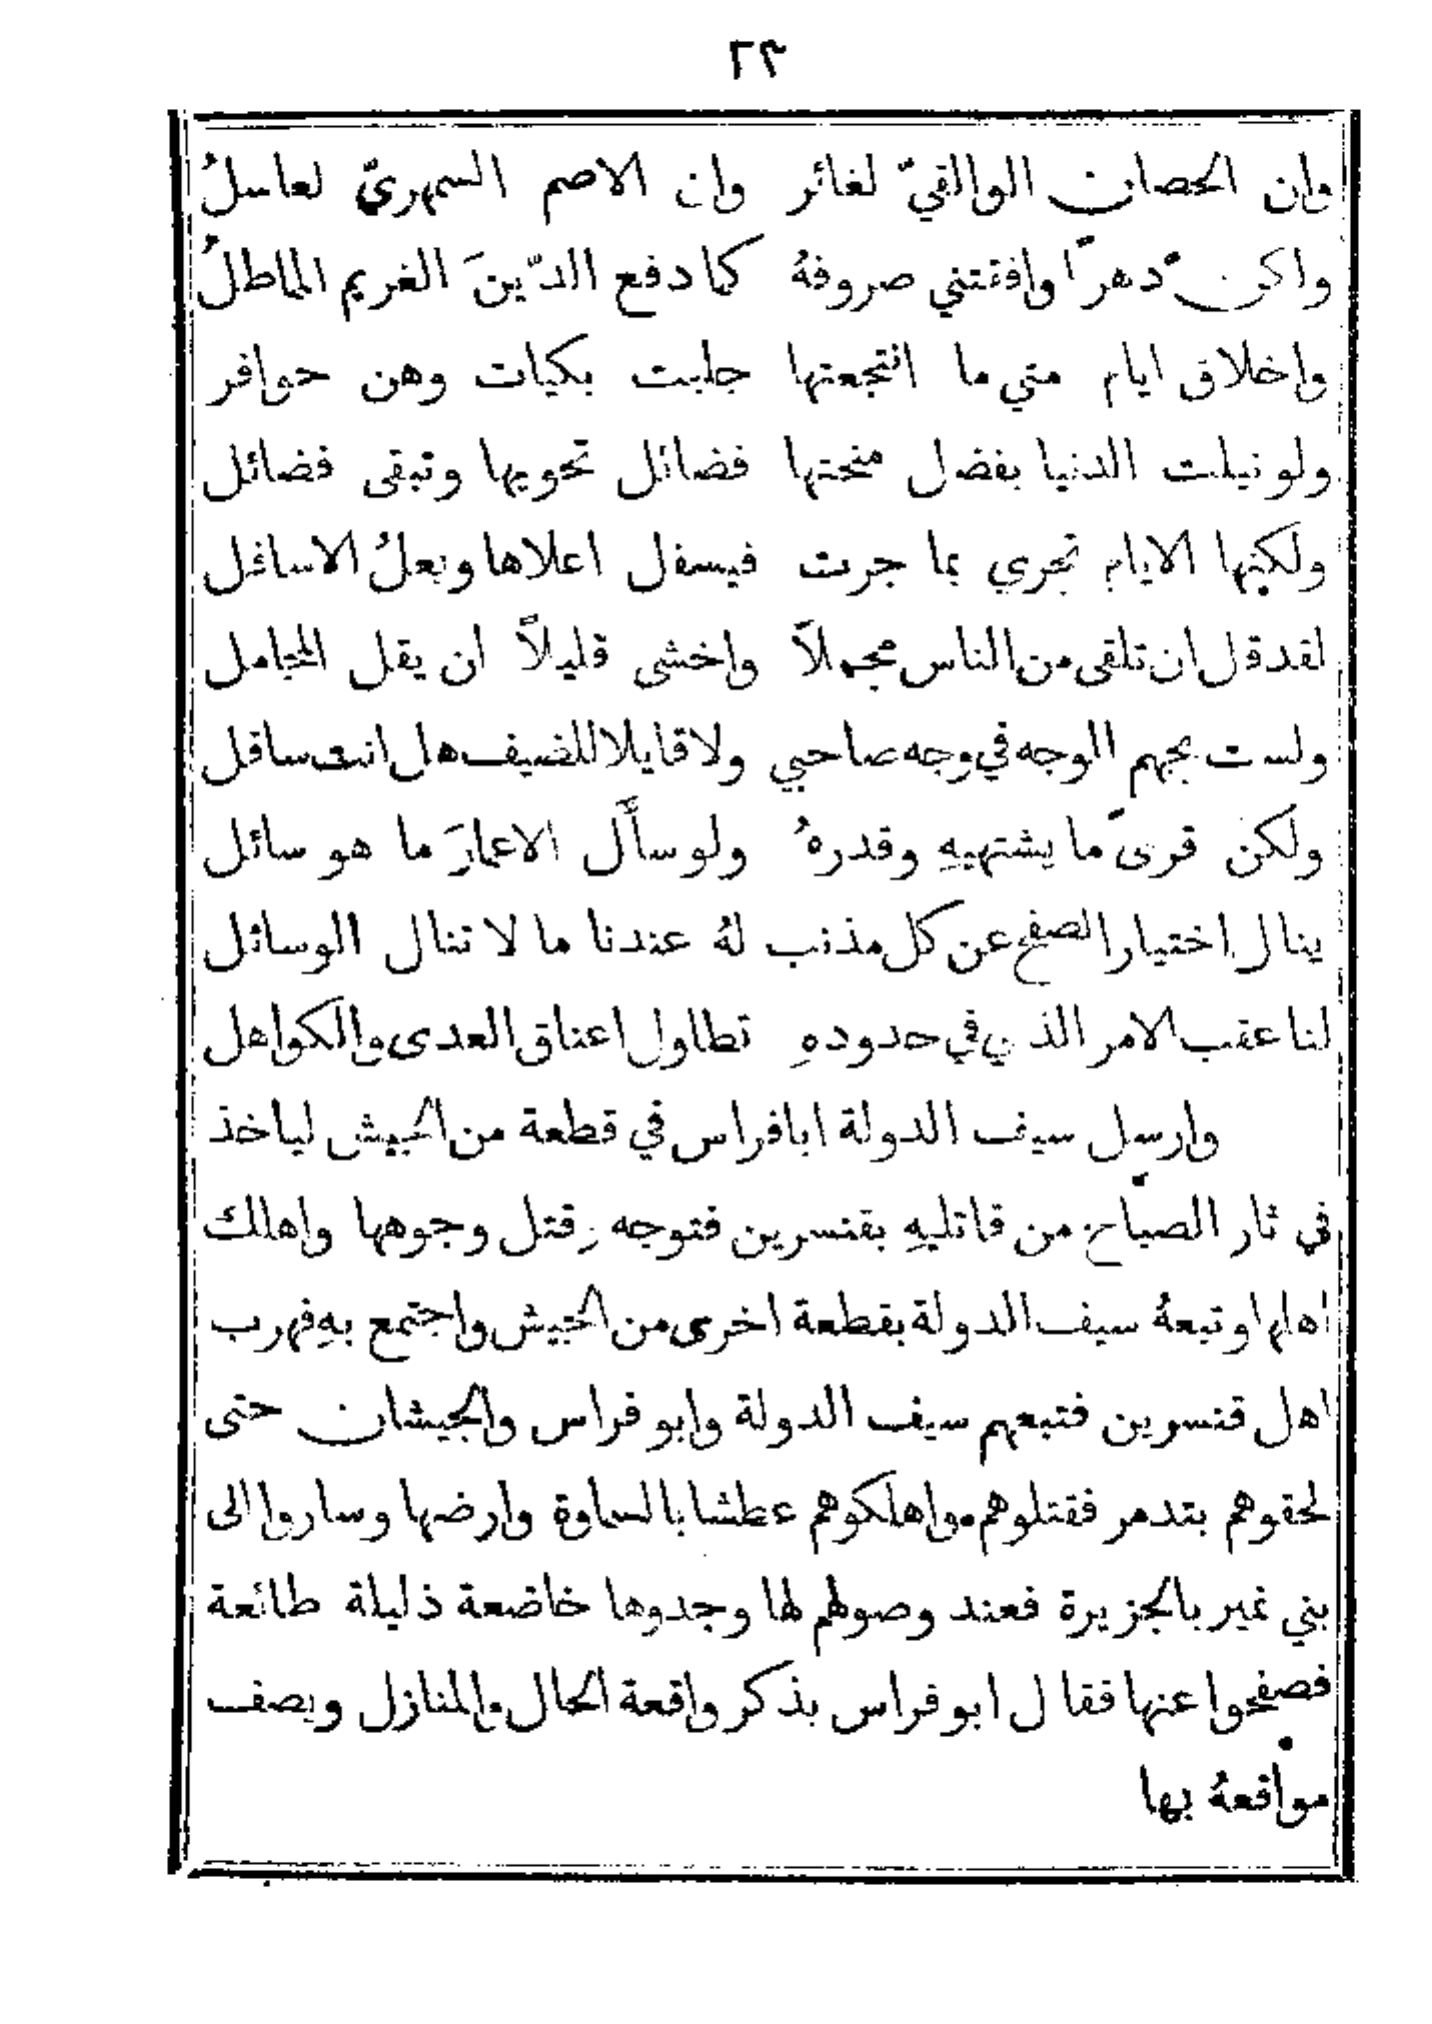 ٢٣
وان الحصان الوالقيّ لغائر وان الاصم السمهريّ لعاسلُ
ولكن دهرًا وافقتني صروفهُ كما دفع الدّينَ الغريم المماطلُ
واخلاق ايام متى ما انتجعتها حلبت بكيات وهن حوافر
ولو نيلت الدنيا بفضل منحتها فضائل تحويها وتبقى فضائل
ولكنها الايام تجري بما جرت فيسفل اعلاها ويعلُ الاسافل
لقد قل ان تلقى من الناس مجملاً واخشى قليلاً ان يقل المجامل
ولست بجهم الوجه في وجه صاحبي ولا قايلا للضيف هل انت سافل
ولكن قرىً ما يشتهيهِ وقدرهُ ولو سأَل الاعمارَ ما هو سائل
ينال اختيار الصفح عن كل مذنب لهُ عندنا ما لا تنال الوسائل
لنا عقب الامر الذي في حدودهِ تطاول اعناق العدى والكواهل
وارسل سيف الدولة ابا فراس في قطعة من الجيش لياخذ
في ثار الصباح من قاتليهِ بقنسرين فتوجه وقتل وجوهها واهلك
اهلها وتبعهُ سيف الدولة بقطعة اخرى من الجيش واجتمع بهِ فهرب
اهل قنسرين فتبعهم سيف الدولة وابو فراس والجيشان حتى
لحقوهم بتدمر فقتلوهم واهلكوهم عطشا بالسماوة وارضها وساروا الى
بني نمير بالجزيرة فعند وصولهم لها وجدوها خاضعة ذليلة طائعة
فصفحوا عنها فقال ابو فراس بذكر واقعة الحال والمنازل ويصف
مواقعهُ بها